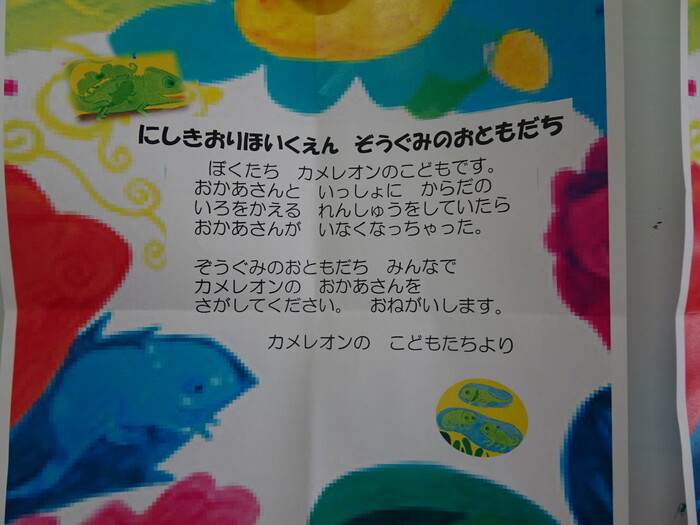 にしきおりほいくえん　ぞうぐみのおともだち
ぼくたち　カメレオンのこどもです。
おかあさんと　いっしょに　からだの
いろをかえる　れんしゅうをしていたら
おかあさんが　いなくなっちゃった。
ぞうぐみのおともだち　みんなで
カメレオンの　おかあさんを
さがしてください。　おねがいします。
カメレオンの　こどもたちより